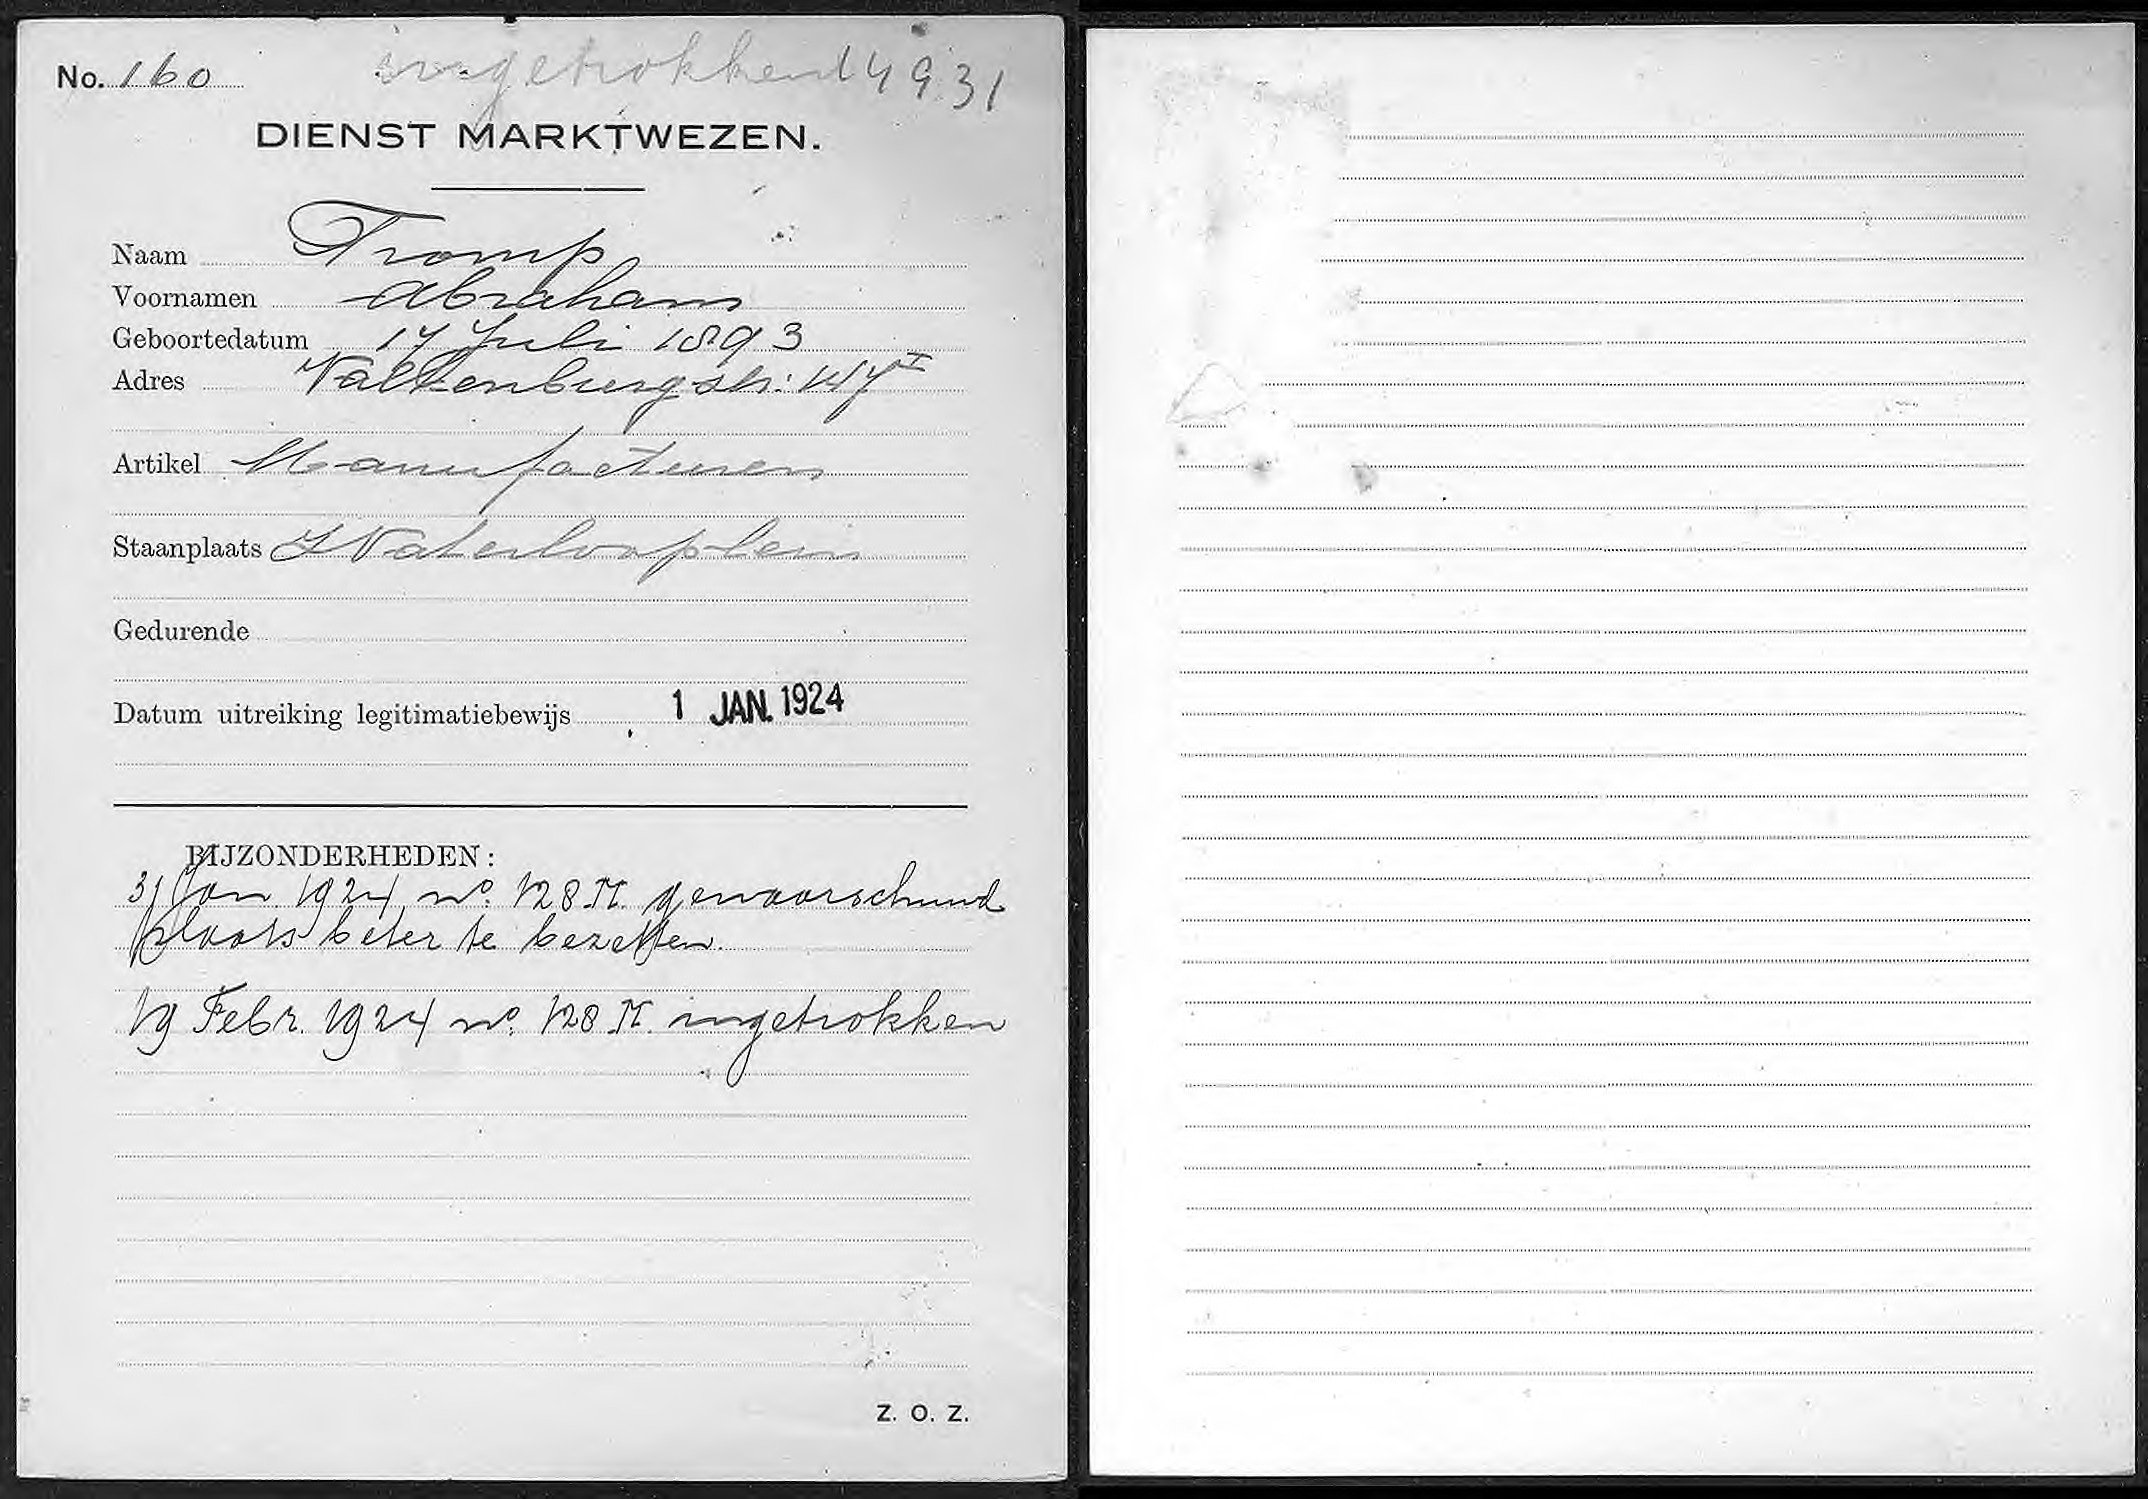 No. 160 ingetrokken 14 9.31
DIENST MARKTWEZEN.
Naam Tromp
Voornamen Abraham
Geboortedatum 17 Juli 1893
Adres Valkenburgstr: 147 I
Artikel Manufacturen
Staanplaats Waterlooplein
Gedurende
Datum uitreiking legitimatiebewijs 1 JAN. 1924
BIJZONDERHEDEN:
31 Jan 1924 no. 128 M. gewaarschuwd
plaats beter te bezetten.
19 Febr. 1924 no. 128 M. ingetrokken
Z. O. Z.